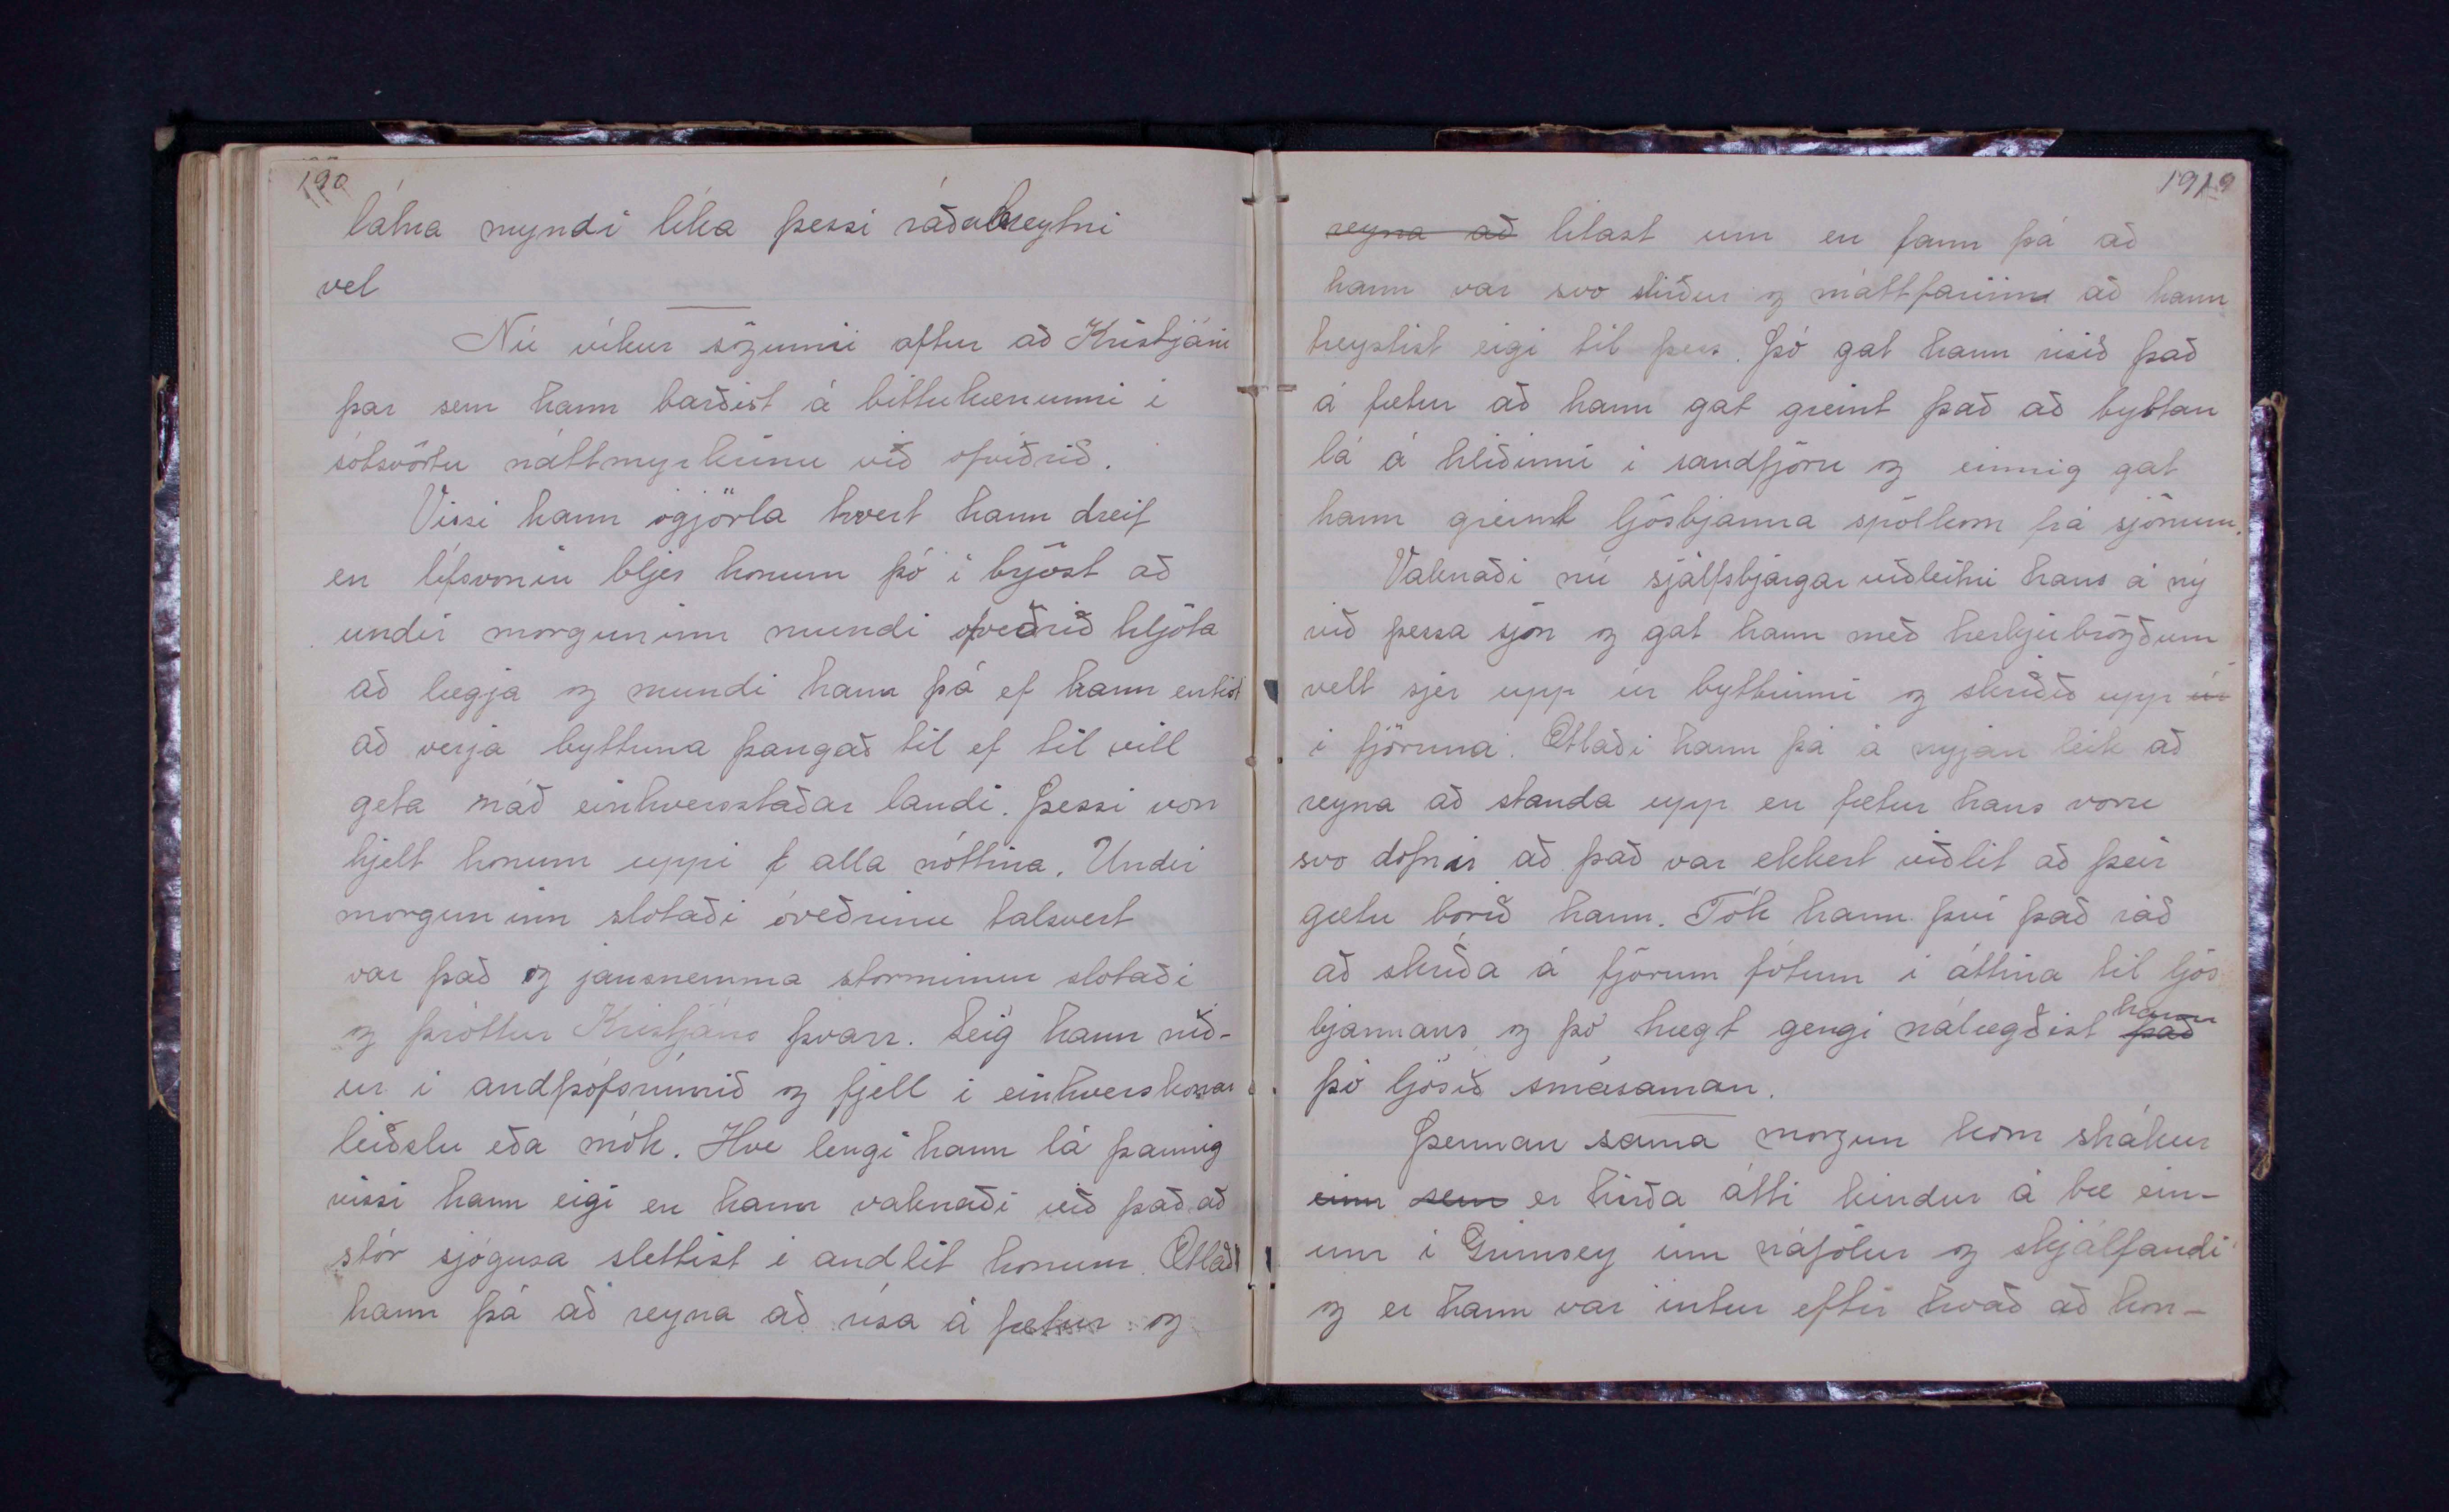 190
látna myndi líka þessi ráðabreytni
vel
Nú víkur sögunni aftur að Kristjáni
þar sem hann barðist á bittukænunni í
sótsvörtu náttmyrkrinu við ofviðrið.
Vissi hann ógjörla hvert hann dreif
en lífsvonin bljes honum þó í brjóst að
undir morguninn mundi ofveðrið hljóta
að lægja og mundi hann þá ef hann entist
að verja byttuna þangað til ef til vill
geta náð einhversstaðar landi. Þessi von
hjelt honum uppi alla nóttina. Undir
morguninn slotaði óveðrinu talsvert
var það og jafnsnemma storminum slotaði
og þróttur Kristjáns þvarr. Seig hann nið-
ur í andþófsrúmið og fjell í einhverskonar
leiðslu eða mók. Hve lengi hann lá þannig
vissi hann eigi en hann vaknaði við það að
stór sjógusa slettist í andlit honum. Ætlaði
hann þá að reyna að rísa á fætur og
1919
reyna að litast um en fann þá að
hann var svo stirður og máttfarinn að hann
treystist eigi til þess. Þó gat hann risið það
á fætur að hann gat greint það að byttan
lá á hliðinni í sandfjöru og einnig gat
hann greint ljósbjarma spölkorn frá sjónum.
Vaknaði nú sjálfsbjargarviðleitni hans á ný
við þessa sjón og gat hann með herkjubrögðum
velt sjer upp úr byttunni og skriðið upp úr
í fjöruna. Ætlaði hann þá á nyjan leik að
reyna að standa upp en fætur hans voru
svo dofnir að það var ekkert viðlit að þeir
gætu borið hann. Tók hann því það ráð
að skríða á fjórum fótum í áttina til ljós
bjarmans og þó hægt gengi nálægðist það hann
þó ljósið smásaman.
Þennan sama morgun kom strákur
einn sem er hirða átti kindur á bæ ein-
um í Grímsey inn náfölur og skjálfandi
og er hann var intur eftir hvað að hon-